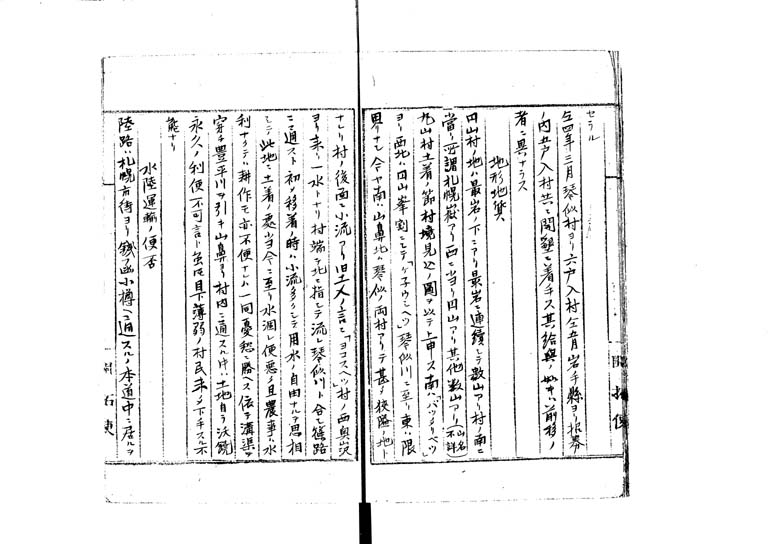 セラル
仝四年三月琴似村ヨリ六戸入村仝五月岩手縣ヨリ招募
ノ内五戸入村共ニ開墾ニ着手ス其給与ノ如キハ前移ノ
者ニ異ナラス
地形地質
円山村地ハ最岩ノ下ニアリ最岩ニ連續シテ數山アリ村ノ南ニ
當リ所謂札幌嶽アリ西ニ当リ円山アリ其他数山アリ(山名不詳)
丸山村土着ノ節村境見込ノ圖ヲ以テ上申ス南ハ「ハツタリベツ」
ヨリ西北ハ円山峯割ニシテ「ケ子ウシベツ」琴似川ニ至リ東ハ限
界ナシ今ヤ南ハ山鼻北ハ琴似ノ両村アリテ甚タ狹隘ノ地ト
ナレリ村ノ後面ニ小流アリ旧土人ノ言ニ「ヨコスベツ」村ノ西奥沢
ヨリ来リ一水トナリ村端ヲ北ニ指シテ流レ琴似川ト合シ篠路
ニ通スト初メ移着ノ時ハ小流多クシテ用水ノ自由ナルヲ思相
シテ此地ニ土着ノ處当今ニ至リ水涸レ便悪ク且農事ハ水
利ナクテハ耕作モ亦不便ナレハ一同憂愁ニ勝ヘス依テ溝渠ヲ
穿チ豊平川ヲ引キ山鼻ヨリ村内ニ通スル片ハ土地自ラ沃饒
永久ノ利便不可言ト虽モ目下薄弱ノ村民未タ下手スル不
能ナリ
水陸運輸ノ便否
陸路ハ札幌市待ヨリ錢函小樽ヘ通スルノ本道中ニ居ルヲ
開拓使
開拓使